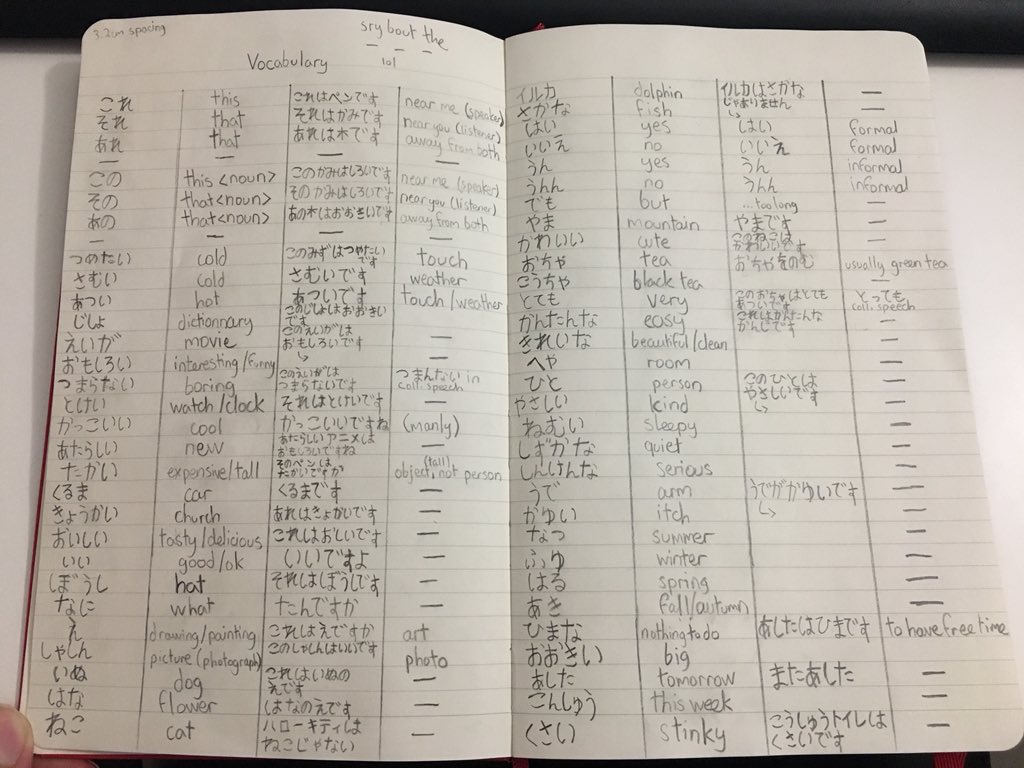 3.2cm spacing
sry bout the
lol
Vocabulary
これ this これはペンです near me (speaker)
それ that それはかみです near you (listener)
あれ that あれは木です away from both
この this <noun> このかみはしろいです near me (speaker)
その that <noun> そのかみはしろいです near you (listener)
あの that <noun> あの木はおおきいです away from both
つめたい cold このみずはつめたいです touch
さむい cold さむいです weather
あつい hot あついです touch/weather
じしょ dictionnary このじしょはおおきいです
えいが movie このえいがは —
おもしろい interesting/funny おもしろいです —
つまらない boring このえいがはつまらないです つまんない in coll. speech
とけい watch/clock それはとけいです —
かっこいい cool かっこいいですね (manly)
あたらしい new あたらしいアニメはおもしろいですね —
たかい expensive/tall そのペンはたかいですか (tall) object, not person
くるま car くるまです —
きょうかい church あれはきょかいです —
おいしい tasty/delicious これはおしいです —
いい good/ok いいですよ —
ぼうし hat それはぼうしです —
なに what なんですか —
え drawing/painting これはえですか art
しゃしん picture (photograph) このしゃしんはいいです photo
いぬ dog これはいぬのえです —
はな flower はなのえです —
ねこ cat ハローキティはねこじゃない —
イルカ dolphin イルカはさかな —
さかな fish じゃありません —
はい yes はい formal
いいえ no いいえ formal
うん yes うん informal
うんん no うんん informal
でも but ...too long —
やま mountain やまです —
かわいい cute このねこはかわいいです —
おちゃ tea おちゃをのむ usually green tea
こうちゃ black tea —
とても very このおちゃはとてもあついです とっても coll. speech
かんたんな easy これはかんたんなかんじです —
きれいな beautiful/clean —
へや room —
ひと person このひとは —
やさしい kind やさしいです —
ねむい sleepy —
しずかな quiet —
しんけんな serious —
うで arm うでがかゆいです —
かゆい itch —
なつ summer —
ふゆ winter —
はる spring —
あき fall/autumn —
ひまな nothing to do あしたはひまです to have free time
おおきい big
あした tomorrow またあした —
こんしゅう this week —
くさい stinky こうしゅうトイレはくさいです —